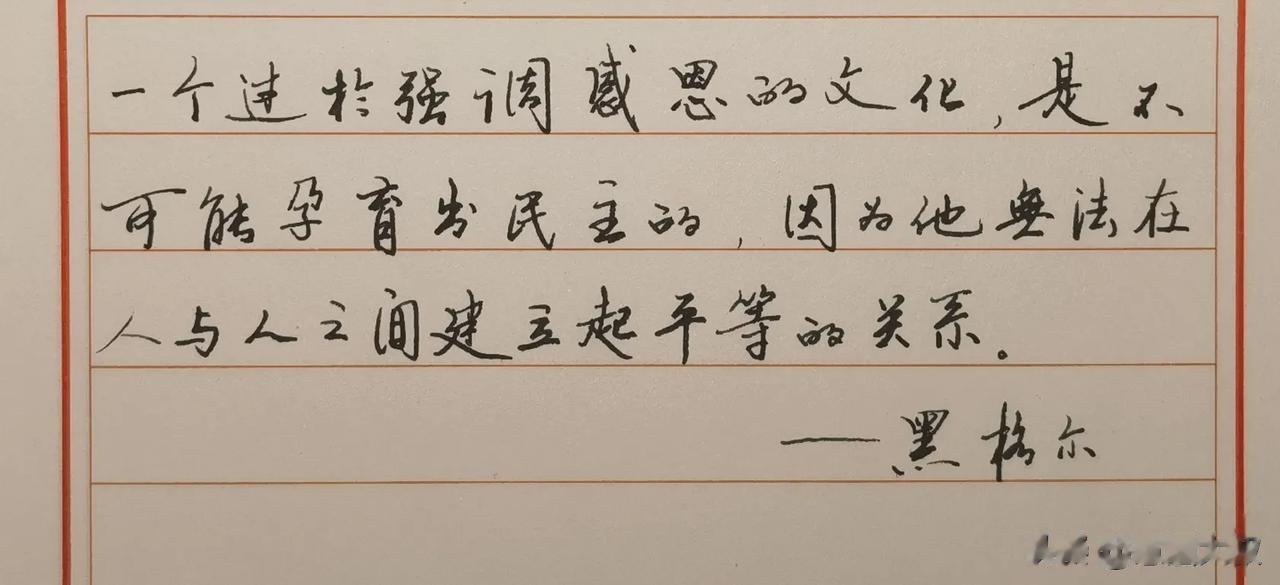 一个过於强调感恩的文化,是不
可能孕育出民主的,因为他無法在
人与人之间建立起平等的关系。
——黑格尔
头条